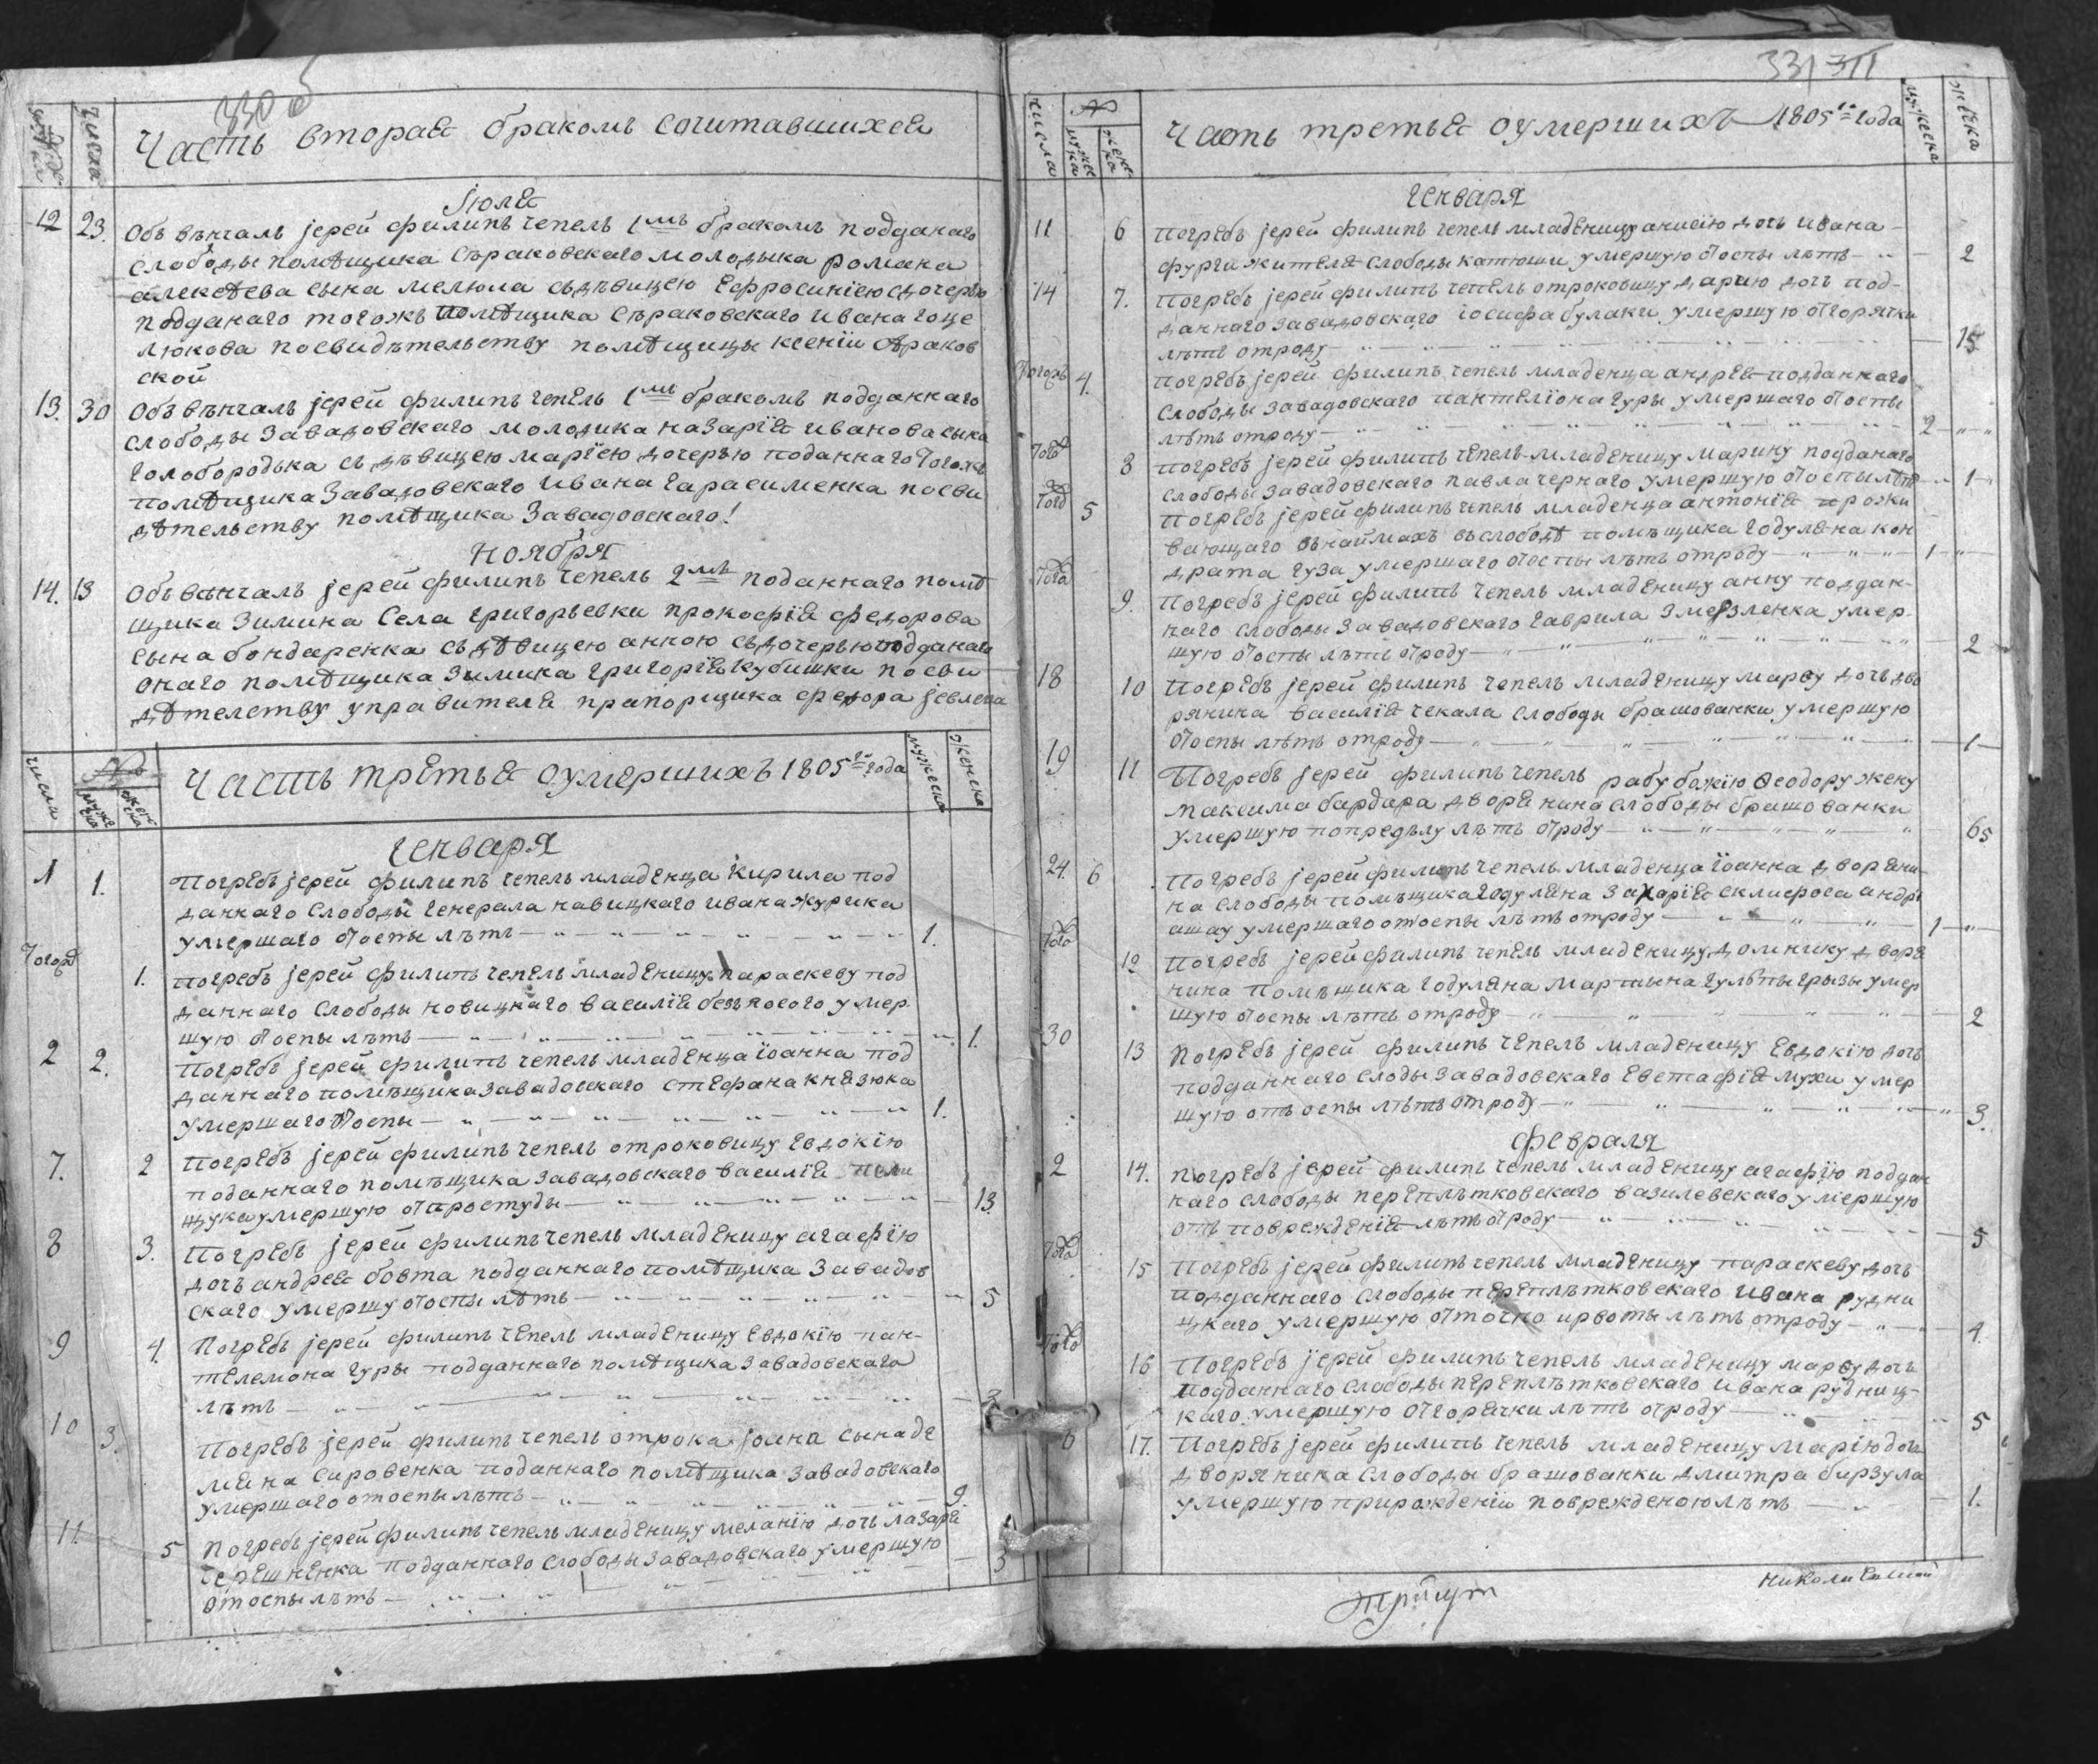 330 об
числа
Часть вторая бракомъ сочитавшихся
Июля
12 23. Объвѣнчалъ јерей филипъ чепель 1мъ бракомъ подданаго
слободы помѣщика Сѣраковскаго молодыка романа
алексѣева сына мелюма сьдѣвицею Ефросиніею сдочерью
подданаго тогожъ помѣщика Сѣраковскаго ивана гоце
люкова посвидѣтельству помѣщицы ксеніи
ской
13. 30 Объвѣнчалъ јерей филипъ чепель 1мъ бракомъ подданнаго
слободы Завадовскаго молодика назарія иванова сына
голобородька съ дѣвицею маріею дочерью поданнаго тогожъ
помѣщика Завадовскаго ивана гарасименка посви
дѣтельству помѣщика Завадовскаго!
ноября
14. 13 Объвѣнчалъ јерей филипъ чепель 2мъ поданнаго помѣ
щика Зимина Села григорьевки прокофія федорова
сына бондаренка съдѣвицею анною сьдочерью подданаго
онаго помѣщика Зимина григорія кубишки посви
дѣтелству управителя прапорщика федора
числа
мужеска
женска
Часть третья оумершихъ 1805го года
мужеска
женска
Генваря
1 1. погребъ јерей филипъ чепель младенца Кирила под
даннаго слободы генерала навицкаго ивана журика
умершаго отоспы лѣтъ 1.
Тогожъ 1. погребъ јерей филипъ чепель младеницу параскеву под
даннаго слободы новицкаго василія безъносого умер
шую отоспы лѣтъ 1.
2 2. погребъ јерей филипъ чепель младенца їоанна под
даннаго помѣщика завадовскаго стефана князюка
умершаго отоспы 1.
7. 2 погребъ јерей филипъ чепель отроковицу Евдокію
поданнаго помѣщика завадовскаго василія поли
щука умершую отпростуды 13.
8 3. погребъ јерей филипъ чепель младеницу агафїю
дочь андрея бовта подданнаго помѣщика Завадов
скаго умершу отоспы лѣтъ 5
9 4. Погребъ јерей филипъ чепель младеницу Евдокію пан-
телемона гуры подданнаго помѣщика завадовскаго
лѣтъ 3
10 3. Погребъ јерей филипъ чепель отрока јоана сына де
мяна сировенка поданнаго помѣщика завадовскаго
умершаго отоспы лѣтъ 9.
11. 5 погребъ јерей филипъ чепель младеницу меланію дочь лазаря
черешненка подданнаго слободы завадовскаго умершую
отоспы лѣтъ 3
331 311
числа
мужеска
женска
Часть третья оумершихъ 1805го года
мужеска
женска
Генваря
11 6 погребъ јерей филипъ чепель младеницу анисію дочь ивана
фурги жителя слободы катюши умершую отоспы лѣтъ 2
14 7. погребъ јерей филипъ чепель отроковицу дарию дочь под-
даннаго завадовскаго іосифа булаки умершую отгорячки
лѣтъ отроду 15
Тогожъ 4. погребъ јерей филипъ чепель младенца андрея подданнаго
слободы завадовскаго пантеліона гуры умершаго отоспы
лѣтъ отроду 2
Того 8 погребъ јерей филипъ чепель младеницу марину подданаго
слободы завадовскаго павла чернаго умершую отоспы лѣтъ 1
Того 5 погребъ јерей филипъ чепель младенца антонія прожи
вающаго внаймахъ вьслободѣ помѣщика годуляна кон
драта гуза умершаго отоспы лѣтъ отроду 1
Того 9. погребъ јерей филипъ чепель младеницу анну поддан-
наго слободы завадовскаго гаврила змерзленка умер
шую отоспы лѣтъ отроду 2
18 10 погребъ јерей филипъ чепель младеницу марѳу дочь дво
рянина василія чекала слободы брашованки умершую
отоспы лѣтъ отроду 1
19 11 погребъ јерей филипъ чепель рабу божію Ѳеодору жену
максима бардара дворянина слободы брашованки
умершую попредѣлу лѣтъ отроду 65
24. 6 погребъ јерей филипъ чепель младенца їоанна дворяни
на слободы помѣщика годуляна захарія склифоса андрі
ашау умершаго отоспы лѣтъ отроду 1
Того 12 погребъ јерей филипъ чепель младеницу домнику дворя
нина помѣщика годуляна мартына гульпыгрызы умер
шую отоспы лѣтъ отроду 2
30 13 погребъ јерей филипъ чепель младеницу Евдокію дочь
подданнаго слоды завадовскаго Евстафія мухи умер
шую отъ оспы лѣтъ отроду 3.
февраля
2 14. погребъ јерей филипъ чепель младеницу агафїю поддан
наго слободы переплѣтковскаго вазилевскаго умершую
отъ поврежденія лѣтъ отроду 5
Того 15 погребъ јерей филипъ чепель младеницу параскеву дочь
подданнаго слободы переплѣтковскаго ивана рудни
цкаго умершую лѣтъ отроду 4.
Того 16 погребъ јерей филипъ чепель младеницу марѳу дочь
подданнаго слободы переплѣтковскаго ивана рудниц-
каго умершую отгорячки лѣтъ отроду 5
6 17. погребъ јерей филипъ чепель младеницу марію дочь
дворянина слободы брашованки дмитра бирзула
умершую прирожденіи поврежденою лѣтъ 1.